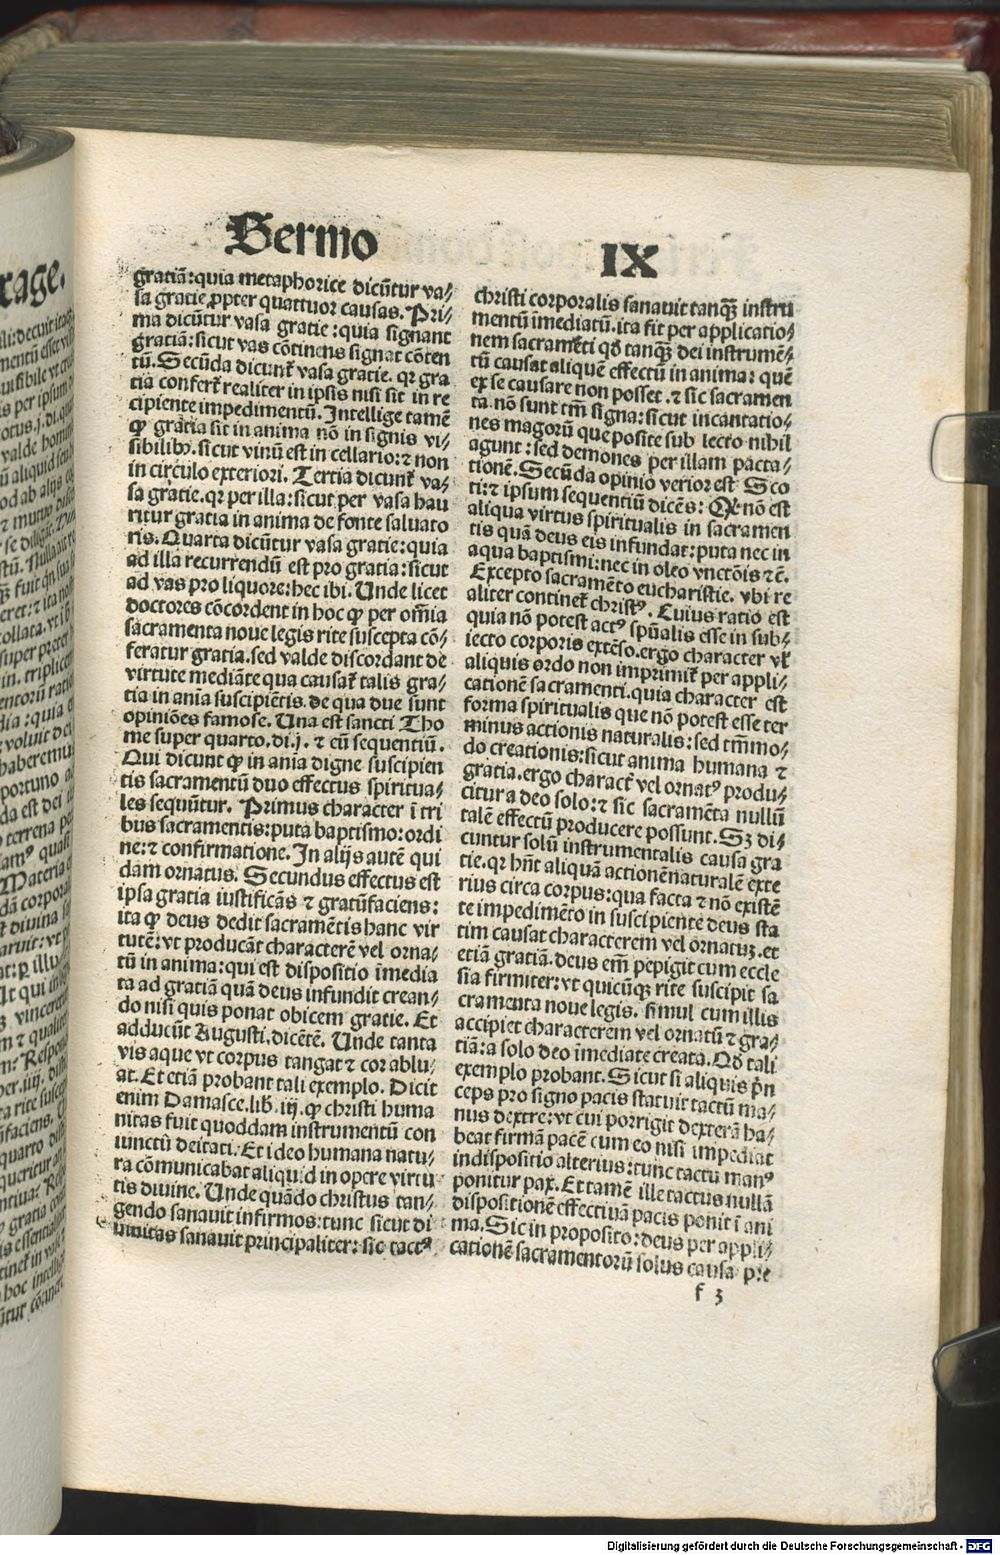 Sermo IX
gratiã: quia metaphorice dicũtur va⸗
sa gratie ꝓpter quattuor causas. Pri⸗
ma dicũtur vasa gratie: quia signant
gratiã: sicut vas cõtinens signat cõten
tũ. Secũda dicunt᷑ vasa gratie. qꝛ gra
tia confert᷑ realiter in ipsis nisi sit in re
cipiente impedimentũ. Intellige tamẽ
ꝙ gratia sit in anima nõ in signis vi⸗
sibilibꝰ. sicut vinũ est in cellario: ⁊ non
in circulo exteriori. Tertia dicunt᷑ va⸗
sa gratie. qꝛ per illa: sicut per vasa hau
ritur gratia in anima de fonte saluato
ris. Quarta dicũtur vasa gratie: quia
ad illa recurrendũ est pro gratia: sicut
ad vas pro liquore: hec ibi. Unde licet
doctores cõcordent in hoc ꝙ per om̃ia
sacramenta noue legis rite suscepta cõ⸗
feratur gratia. sed valde discordant de
virtute mediãte qua causat᷑ talis gra⸗
tia in aniã suscipiẽtis. de qua due sunt
opiniões famose. Una est sancti Tho
me super quarto. di. j. ⁊ eũ sequentiũ.
Qui dicunt ꝙ in aniã digne suscipien
tis sacramentũ duo effectus spiritua⸗
les sequũtur. Primus character ĩ tri
bus sacramentis: puta baptismo: ordi
ne: ⁊ confirmatione. In alijs autẽ qui
dam ornatus. Secundus effectus est
ipsa gratia iustificãs ⁊ gratũfaciens:
ita ꝙ deus dedit sacramẽtis hanc vir
tutẽ: vt producãt characterẽ vel orna⸗
tũ in anima: qui est dispositio ĩmedia
ta ad gratiã quã deus infundit crean⸗
do nisi quis ponat obicem gratie. Et
adducũt Augusti. dicẽtẽ. Unde tanta
vis aque vt corpus tangat ⁊ cor ablu⸗
at. Et etiã probant tali exemplo. Dicit
enim Damasce. lib. iij. ꝙ christi huma
nitas fuit quoddam instrumentũ con
iunctũ deitati. Et ideo humana natu⸗
ra cõmunicabat aliquid in opere virtu
tis divine. Unde quãdo christus tan⸗
gendo sanauit infirmos: tunc sicut di
uinitas sanauit principaliter: sic tactꝰ
christi corporalis sanauit tanqꝫ instru
mentũ ĩmediatũ. ita fit per applicatio⸗
nem sacramẽti qd̓ tanqꝫ dei instrumẽ⸗
tũ causat aliquẽ effectũ in anima: quẽ
ex se causare non posset. ⁊ sic sacramen
ta nõ sunt tm̃ signa: sicut incantatio⸗
nes magorũ que posite sub lecto nihil
agunt: sed demones per illam pacta⸗
tionẽ. Secũda opinio verior est Sco
ti: ⁊ ipsum sequentiũ dicẽs: Qꝙ nõ est
aliqua virtus spiritualis in sacramen
tis quã deus eis infundat: puta nec in
aqua baptismi: nec in oleo vnctõis ⁊c̃.
Excepto sacramẽto eucharistie. vbi re
aliter continet᷑ christꝰ. Cuius ratio est
quia nõ potest actꝰ spũalis esse in sub⸗
iecto corporis extẽso. ergo character vl̓
aliquis ordo non imprimit᷑ per appli⸗
cationẽ sacramenti. quia character est
forma spiritualis que nõ potest esse ter
minus actionis naturalis: sed tm̃mo⸗
do creationis: sicut anima humana ⁊
gratia. ergo charact᷑ vel ornatꝰ produ⸗
citur a deo solo: ⁊ sic sacramẽta nullũ
talẽ effectũ producere possunt. Sꝫ di⸗
cuntur solũ instrumentalis causa gra
tie. qꝛ hñt aliquã actionẽ naturalẽ exte
rius circa corpus: qua facta ⁊ nõ existẽ
te impedimẽto in suscipiente deus sta
tim causat characterem vel ornatuꝫ. et
etiã gratiã. deus em̃ pepigit cum eccle
sia firmiter: vt quicũqꝫ rite suscipit sa
cramenta noue legis. simul cum illis
accipiet characterem vel ornatũ ⁊ gra⸗
tiã: a solo deo ĩmediate creata. Qd̓ tali
exemplo probant. Sicut si aliquis pñ
ceps pro signo pacis statuit tactũ ma⸗
nus dextre: vt cui porrigit dexterã ha⸗
beat firmã pacẽ cum eo nisi impediat
indispositio alterius: tunc tactu manꝰ
ponitur pax. Et tamẽ ille tactus nullã
dispositionẽ effectiuã pacis ponit ĩ ani
ma. Sic in proposito: deus per appli⸗
cationẽ sacramentorũ solus causa pre
f 3
Digitalisierung gefördert durch die Deutsche Forschungsgemeinschaft - DFG